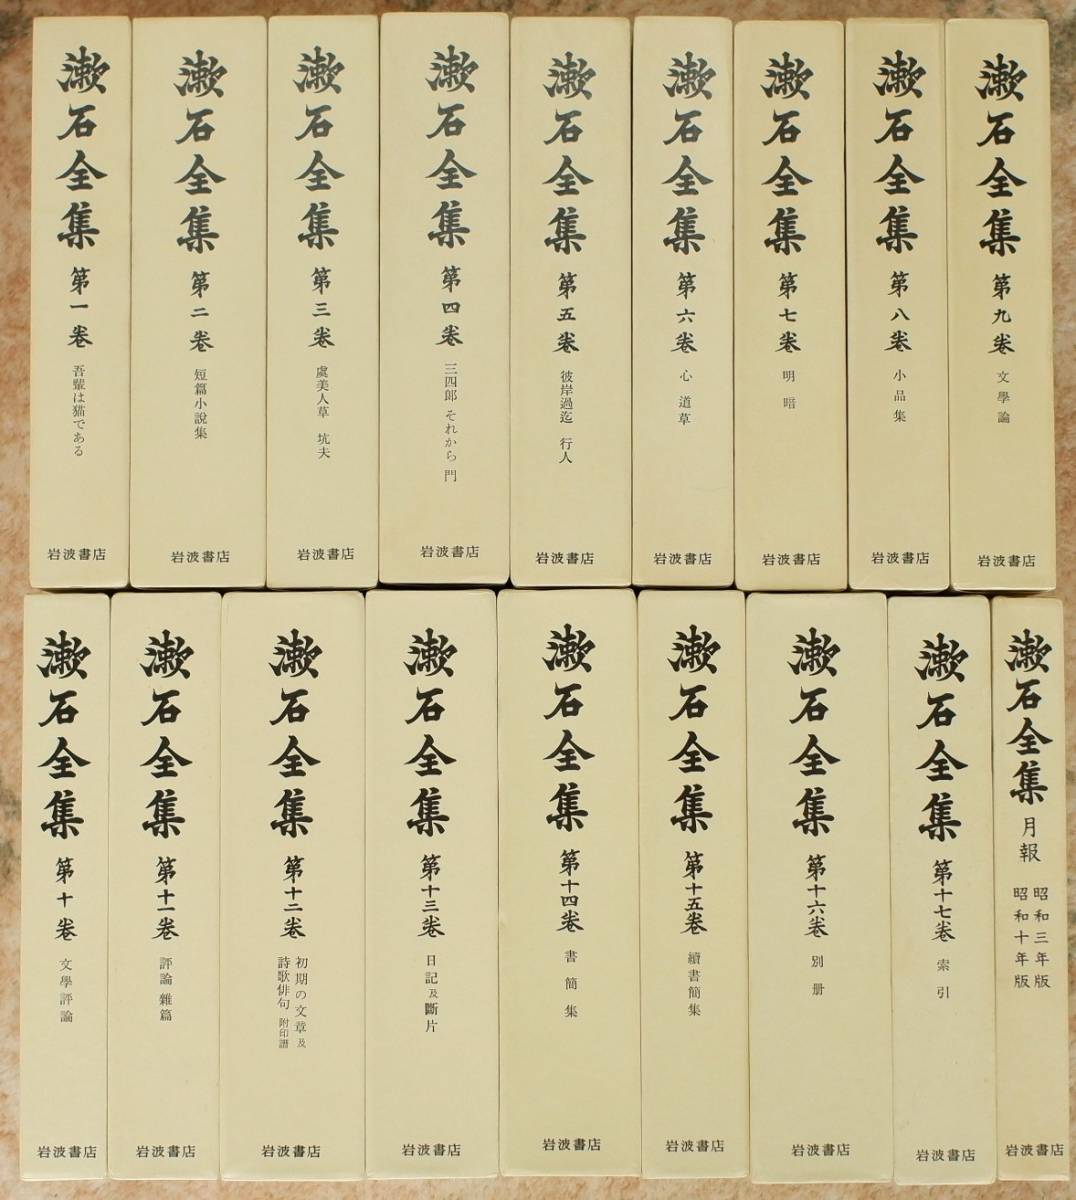 漱石全集 第一巻 吾輩は猫である 岩波書店
漱石全集 第二巻 短篇小說集 岩波書店
漱石全集 第三巻 虞美人草 坑夫 岩波書店
漱石全集 第四巻 三四郎 それから 門 岩波書店
漱石全集 第五巻 彼岸過迄 行人 岩波書店
漱石全集 第六巻 心 道草 岩波書店
漱石全集 第七巻 明暗 岩波書店
漱石全集 第八巻 小品集 岩波書店
漱石全集 第九巻 文學論 岩波書店
漱石全集 第十巻 文學評論 岩波書店
漱石全集 第十一巻 評論 雜篇 岩波書店
漱石全集 第十二巻 初期の文章及
詩歌俳句 附印譜 岩波書店
漱石全集 第十三巻 日記及斷片 岩波書店
漱石全集 第十四巻 書簡集 岩波書店
漱石全集 第十五巻 續書簡集 岩波書店
漱石全集 第十六巻 別册 岩波書店
漱石全集 第十七巻 索引 岩波書店
漱石全集 月報 昭和三年版
昭和十年版 岩波書店